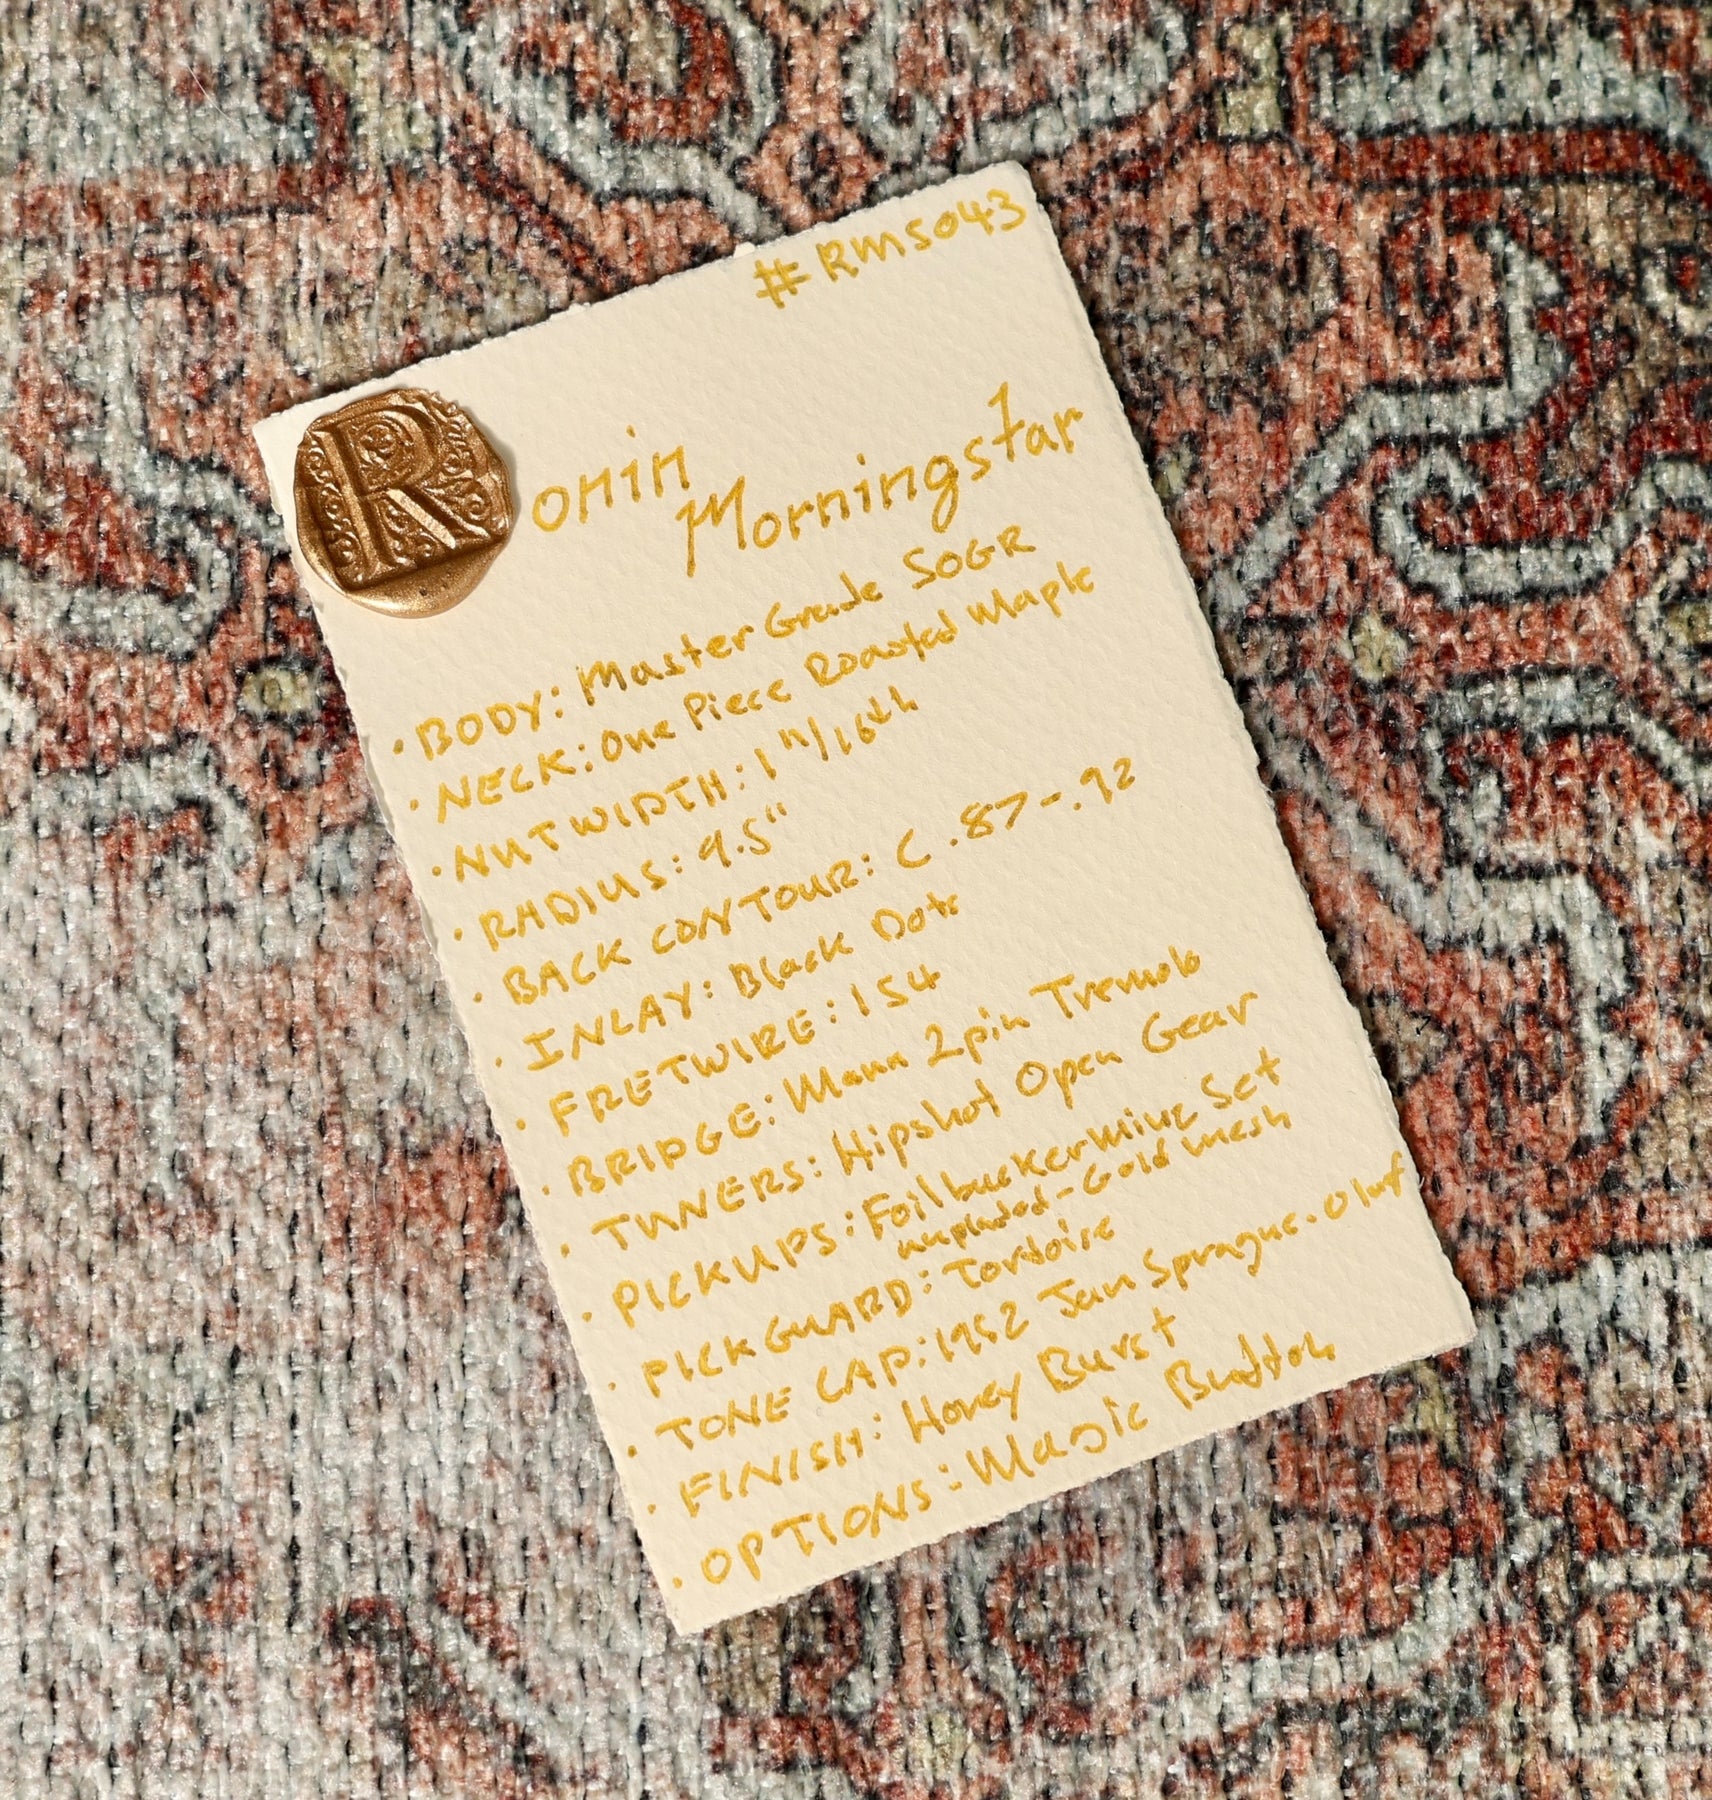 #RMS043
Ronin
Morningstar
· BODY: Master Grade SOGR
· NECK: One Piece Roasted Maple
· NUTWIDTH: 1 11/16th
· RADIUS: 9.5"
· BACK CONTOUR: C .87-.92
· INLAY: Black Dots
· FRETWIRE: 154
· BRIDGE: Mann 2pin Tremolo
· TUNERS: Hipshot Open Gear
· PICKUPS: Foilbucker Mine Set
unplated - Gold mesh
· PICKGUARD: Tortoise
· TONE CAP: 1952 Jan Sprague .01uf
· FINISH: Honey Burst
· OPTIONS: Magic Button